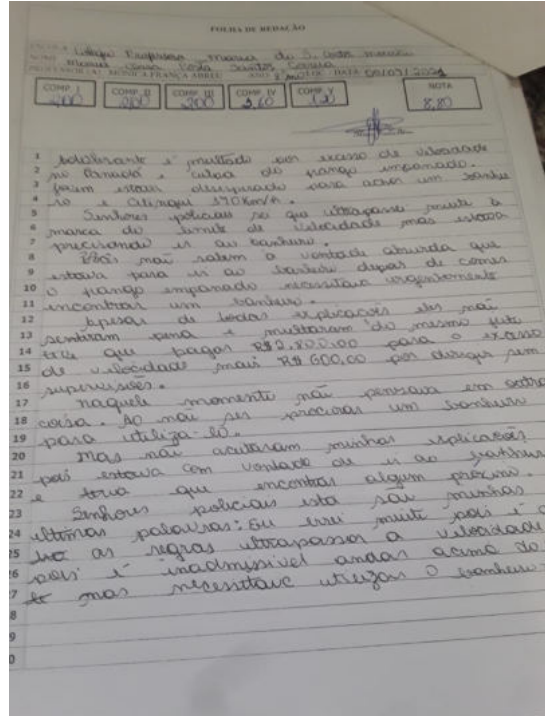 FOLHA DE REDAÇÃO
Colégio Professora Maria do S.
Maria Costa Santos Correia
PROFESSOR(A) MÔNICA FRANÇA ABREU ANO 8º DATA
COMP. I COMP. II COMP. III COMP. IV COMP. V NOTA
2,00 2,00 2,00 1,20 8,80
1 Adolescente é multado por excesso de velocidade
2 no Panudo é culpa do frango empanado.
3 foram estava desesperado para achar um banhe
4 ro e atingiu 170Km/h.
5 Senhores policiais sei que ultrapassei muito a
6 marca do limite de velocidade mas estava
7 precisando ir ao banheiro.
8 não sabem a vontade absurda que
9 estava para ir ao banheiro depois de comer
10 o frango empanado necessitava urgentemente
11 encontrar um banheiro.
12 Apesar de todas explicações eles não
13 sentiram pena e multaram do mesmo jeito
14 tive que pagar R$2.800,00 para o excesso
15 de velocidade mais R$ 600,00 por dirigir sem
16 supervisões.
17 naquele momento não pensava em outra
18 coisa. Ao não ser procurar um banheiro
19 para utiliza-lo.
20 Mas não aceitaram minhas explicações
21 pois estava com vontade de ir ao banheiro
22 e teria que encontrar algum próximo.
23 Senhores policiais esta são minhas
24 ultimas palavras: Eu errei muito pois é
25 as regras ultrapassar a velocidade
26 pois é inadmissivel andar acima do
27 mas necessitava utilizar o banheiro.
8
9
0